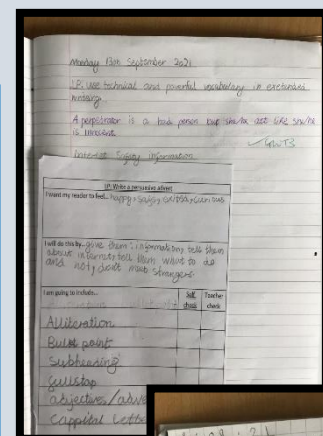 Monday 13th September 2021
LP: use technical and powerful vocabulary in extended
writing.
A perpetrator is a bad person but she/he act like she/he
is innocent.
Internet Safety information
LP: Write a persuasive advert
I want my reader to feel... happy, safe,
I will do this by... give them information, tell them
about internet, tell them what to do
and not, don't meet strangers.
I am going to include...
Self check
Teacher check
Alliteration
Bullet point
Subheading
fullstop
adjectives/adve
Cappital Lette